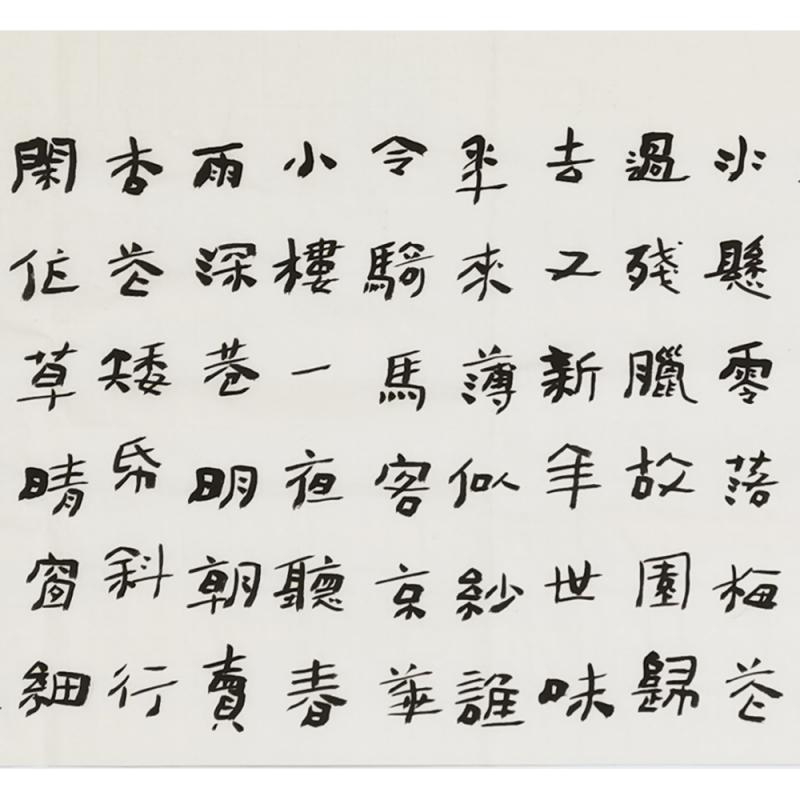 冰懸零落梅花
過殘臘故園歸
去又新年世味
年來薄似紗誰
令騎馬客京華
小樓一夜聽春
雨深巷明朝賣
杏花矮帋斜行
閑作草晴窗細